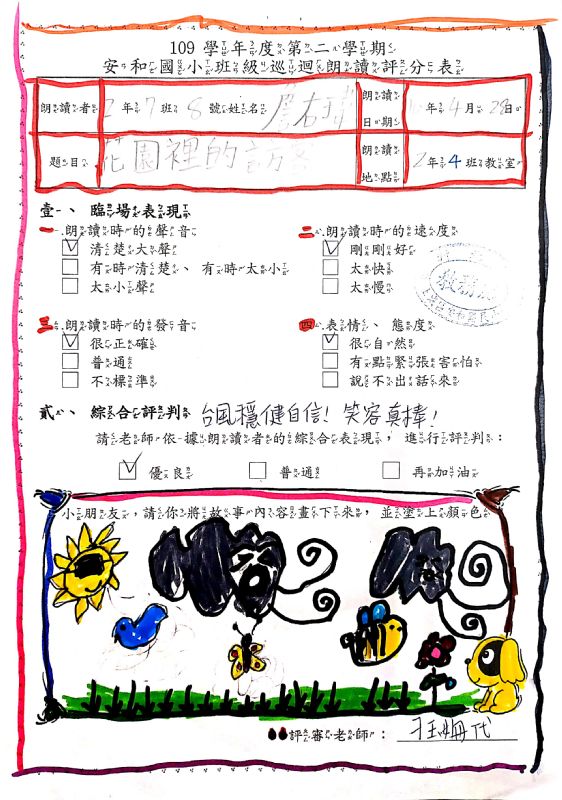 109 學年度第二學期
安和國小班級巡迴朗讀評分表
朗讀者 2年7班8號姓名
朗讀日期 年4月28日
題目 花園裡的訪客
朗讀地點 2年4班教室
壹、臨場表現
一.朗讀時的聲音
清楚大聲
有時清楚、有時太小
太小聲
二.朗讀時的速度
剛剛好
太快
太慢
三.朗讀時的發音
很正確
普通
不標準
四.表情、態度
很自然
有點緊張害怕
說不出話來
貳、綜合評判 台風穩健自信!笑容真棒!
請老師依據朗讀者的綜合表現,進行評判:
優良 普通 再加油
小朋友,請你將故事內容畫下來,並塗上顏色
評審老師: